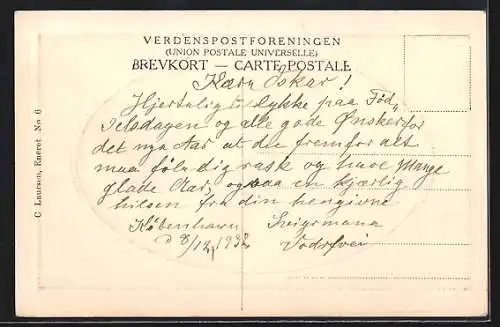 VERDENSPOSTFORENINGEN
(UNION POSTALE UNIVERSELLE)
BREVKORT — CARTE POSTALE
Kære Oskar!
Hjertelig Lykke paa Fød,
selsdagen og alle gode Ønsker for
det nye Aar at du fremfor alt
maa føle dig rask og have Mange
glade Aar, og saa en kjærlig
hilsen fra din hengivne
København
d 8/12, 1932
C Laursen, Eneret. No 6